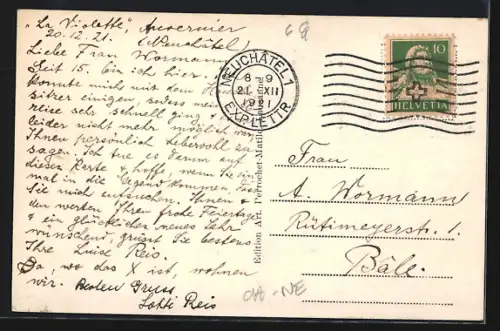 "La Violette", Auvernier
20.12.21. (Neuchâtel)
Liebe Frau Wormann,
Seit 15. bin ich hier. Ich
konnte mich mit dem
sitzer einigen, sodass meine
reise sehr schnell ging &
leider nicht mehr möglich war
Ihnen persönlich Lebewohl zu
sagen. Ich tue es darum auf
dieser Karte & hoffe, wenn Sie ein-
mal in die Gegend kommen, dass
Sie mich aufsuchen. Ihnen &
den werten Ihren frohe Feiertage
& ein glückliches neues Jahr
wünschend, grüsst Sie bestens
Ihre Luise Reis.
Da, wo das X ist, wohnen
wir. Besten Gruss
Lotti Reis
69
NEUCHÂTEL 1
8-9
21. XII
1921
EXP. LETTR.
10
HELVETIA
Edition Art. Perrochet-Matile
Frau
A. Wormann
Rütimeyerstr. 1.
Bâle.
CH-NE